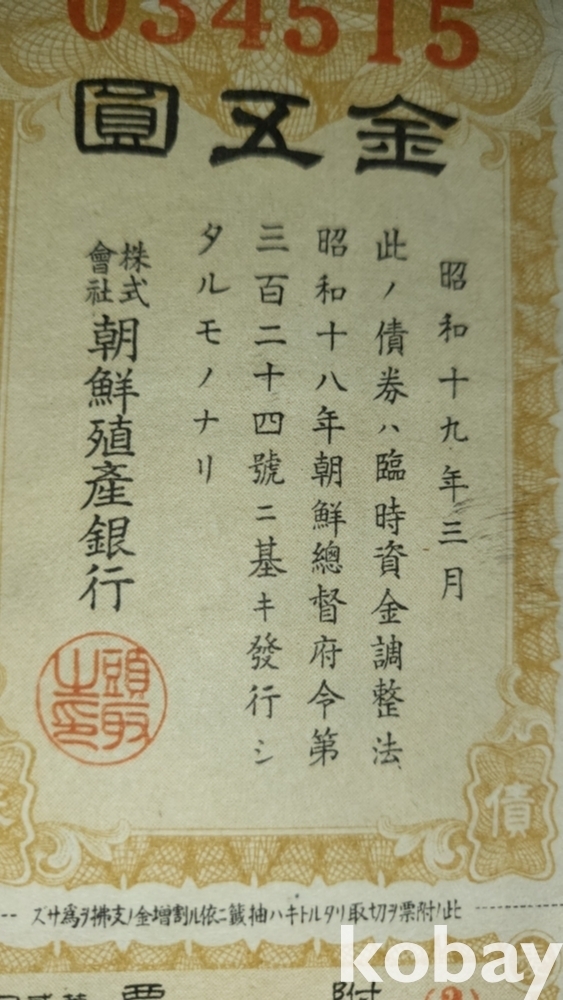 034515
金五圓
昭和十九年三月
此ノ債券ハ臨時資金調整法
昭和十八年朝鮮總督府令第
三百二十四號ニ基キ發行シ
タルモノナリ
株式
會社
朝鮮殖產銀行
頭取
之印
債
此ノ附票ヲ切取リタルトキハ抽籤ニ依ル割增金ノ支拂ヲ爲サズ
附
票
kobay